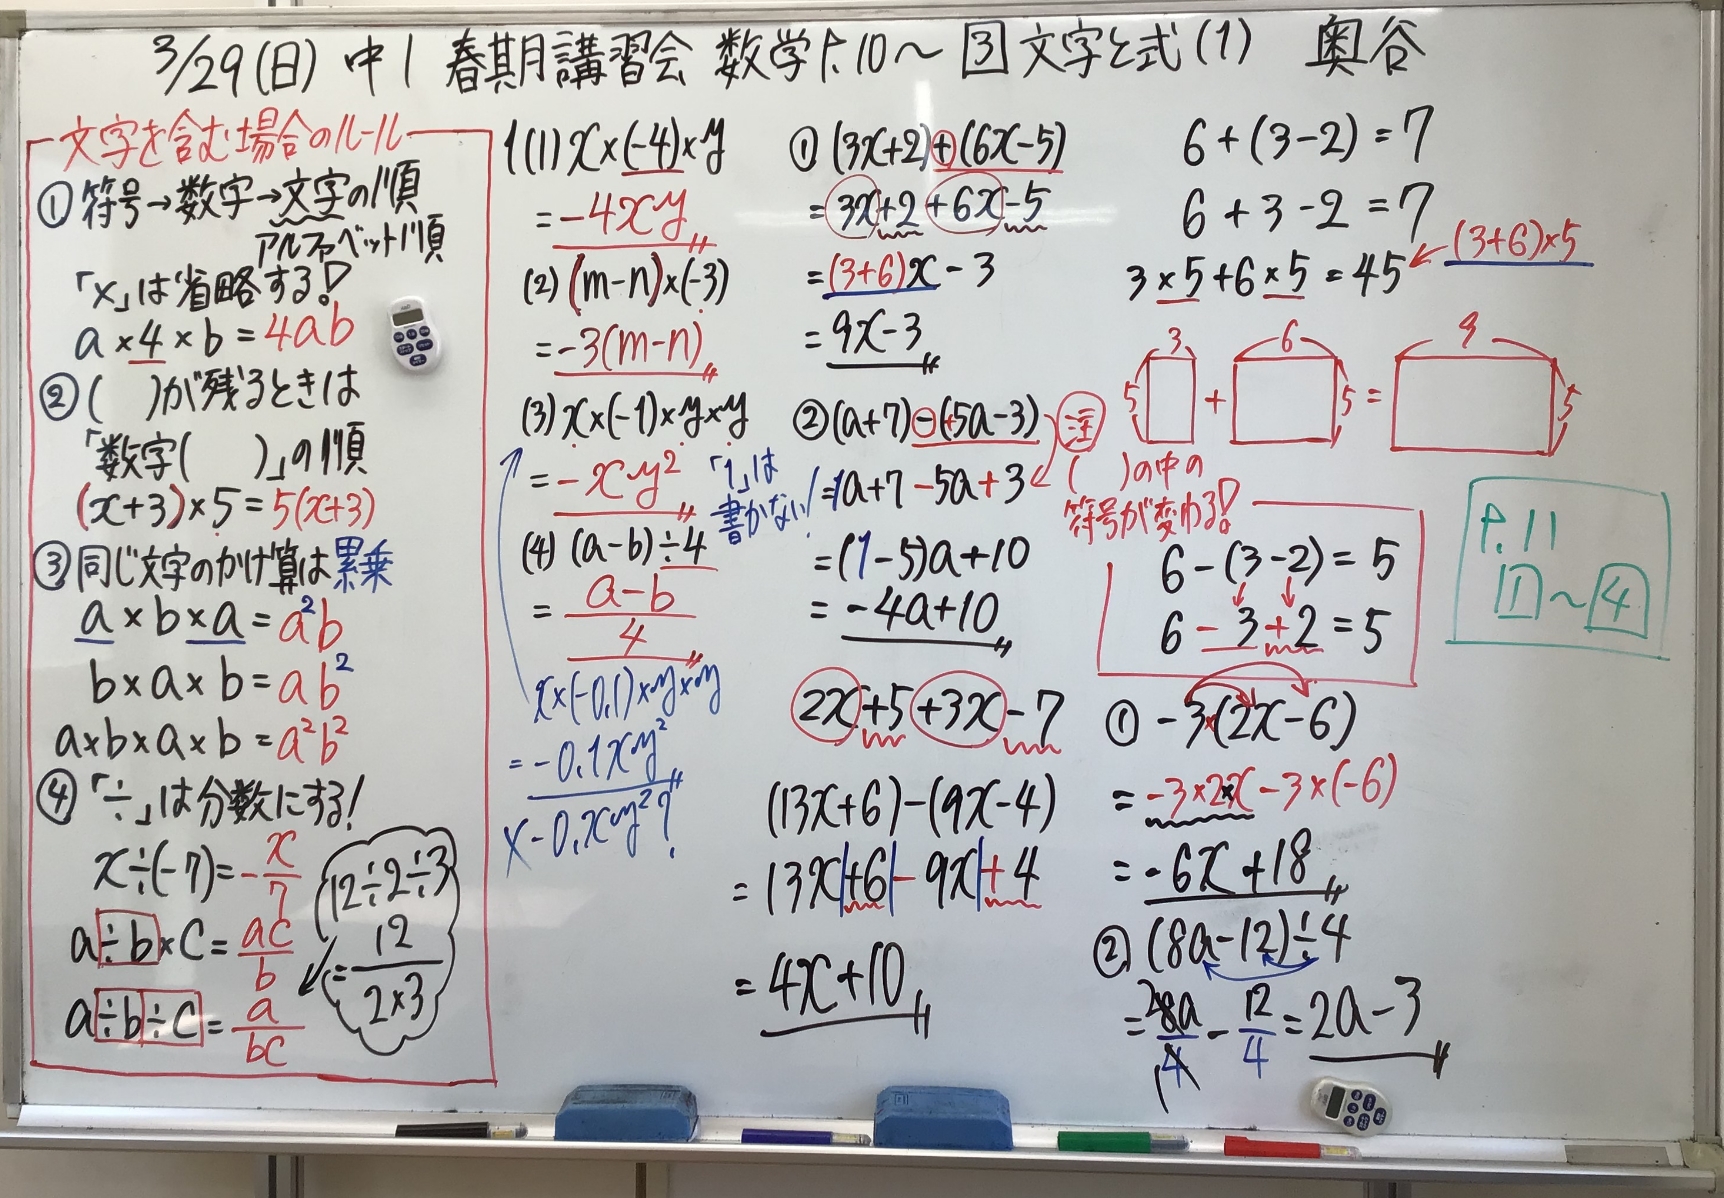 3/29(日) 中1 春期講習会 数学P.10～ 3 文字と式(1) 奥谷
文字を含む場合のルール
① 符号→数字→文字の順
アルファベット順
「×」は省略する!
a×4×b=4ab
② ( )が残るときは
「数字( )」の順
(x+3)×5=5(x+3)
③ 同じ文字のかけ算は累乗
a×b×a=a²b
b×a×b=ab²
a×b×a×b=a²b²
④ 「÷」は分数にする!
x÷(-7)=-x/7
a÷b×c=ac/b
a÷b÷c=a/bc
12÷2÷3
=12/2×3
1(1) x×(-4)×y
=-4xy
(2) (m-n)×(-3)
=-3(m-n)
(3) x×(-1)×y×y
=-xy²
「1」は
書かない!
(4) (a-b)÷4
=a-b/4
x×(-0.1)×y×y
=-0.1xy²
×-0.xy²?
① (3x+2)+(6x-5)
=3x+2+6x-5
=(3+6)x-3
=9x-3
② (a+7)-(+5a-3)
=1a+7-5a+3
=(1-5)a+10
=-4a+10
2x+5+3x-7
(13x+6)-(9x-4)
=13x+6-9x+4
=4x+10
6+(3-2)=7
6+3-2=7
3×5+6×5=45
(3+6)×5
3 6 9
5 + 5 = 5
注
( )の中の
符号が変わる!
6-(3-2)=5
6-3+2=5
① -3×(2x-6)
=-3×2×x-3×(-6)
=-6x+18
② (8a-12)÷4
=28a/4-12/4=2a-3
1
P.11
1～4